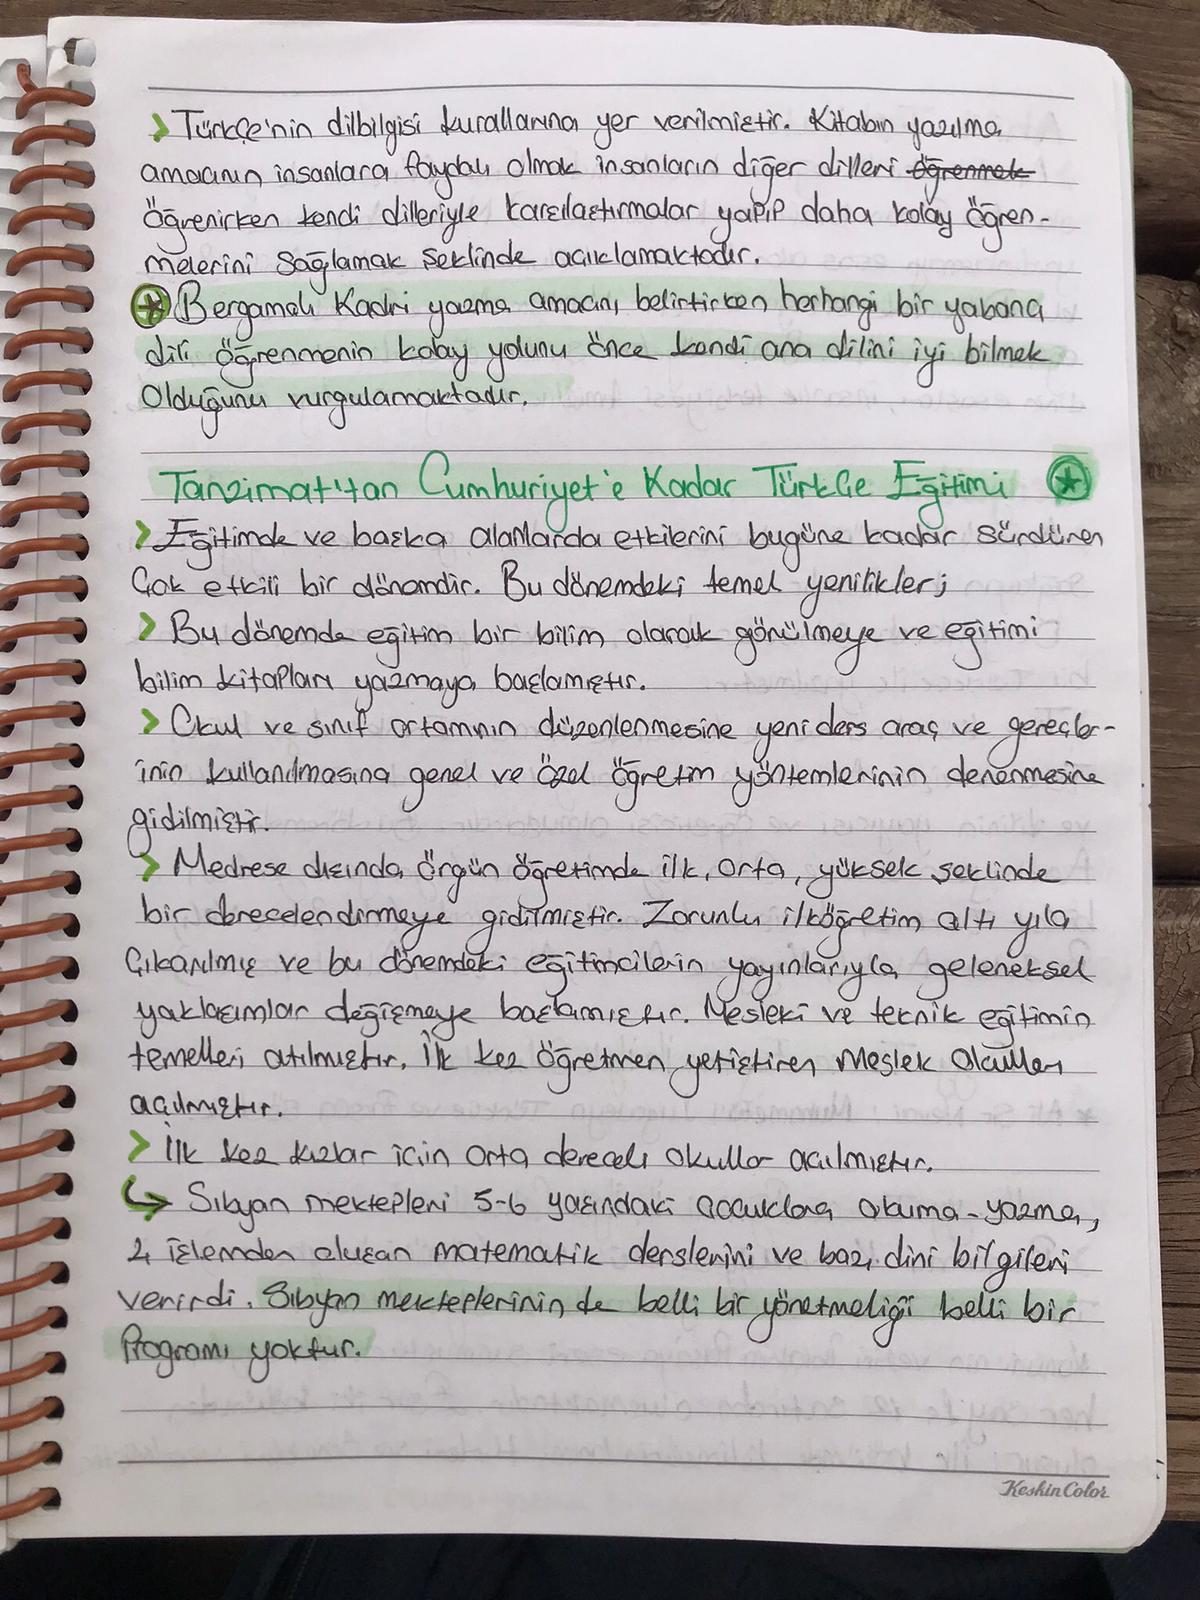 > Türkçe'nin dilbilgisi kurallarına yer verilmiştir. Kitabın yazılma
amacının insanlara faydalı olmak insanların diğer dilleri öğrenmek
öğrenirken kendi dilleriyle karşılaştırmalar yapıp daha kolay öğren-
melerini sağlamak şeklinde açıklamaktadır.
Bergamalı Kadri yazma amacını belirtirken herhangi bir yabancı
dili öğrenmenin kolay yolunu önce kendi ana dilini iyi bilmek
Olduğunu vurgulamaktadır.
Tanzimat'tan Cumhuriyet'e Kadar Türkçe Eğitimi
> Eğitimde ve başka alanlarda etkilerini bugüne kadar sürdüren
çok etkili bir dönemdir. Bu dönemdeki temel yenilikler;
> Bu dönemde eğitim bir bilim olarak görülmeye ve eğitimi
bilim kitapları yazmaya başlamıştır.
> Okul ve sınıf ortamının düzenlenmesine yeni ders araç ve gereçler-
inin kullanılmasına genel ve özel öğretim yöntemlerinin denenmesine
gidilmiştir.
> Medrese dışında örgün öğretimde ilk, orta, yüksek şeklinde
bir derecelendirmeye gidilmiştir. Zorunlu ilköğretim altı yıla
Çıkarılmış ve bu dönemdeki eğitimcilerin yayınlarıyla geleneksel
yaklaşımlar değişmeye başlamıştır. Mesleki ve teknik eğitimin
temelleri atılmıştır. İlk kez öğretmen yetiştiren Meslek Okulları
açılmıştır.
> İlk kez kızlar için orta dereceli okullar açılmıştır.
↳ Sıbyan mektepleri 5-6 yaşındaki çocuklara okuma-yazma,
4 işlemden oluşan matematik derslerini ve bazı dini bilgileri
verirdi. Sıbyan mekteplerinin de belli bir yönetmeliği belli bir
Programı yoktur.
Keskin Color